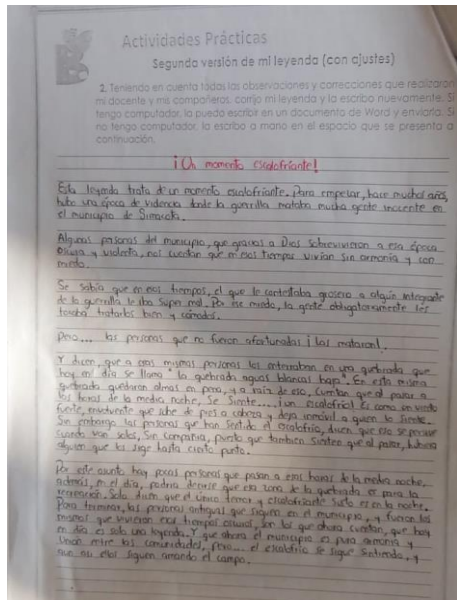 Actividades Prácticas
Segunda versión de mi leyenda (con ajustes)
2. Teniendo en cuenta todas las observaciones y correcciones que realizaron
mi docente y mis compañeros, corrijo mi leyenda y la escribo nuevamente. Si
tengo computador, la puedo escribir en un documento de Word y enviarla. Si
no tengo computador, la escribo a mano en el espacio que se presenta a
continuación.
¡Un momento escalofriante!
Esta leyenda trata de un momento escalofriante. Para empezar, hace muchos años,
hubo una época de violencia donde la guerrilla mataba mucha gente inocente en
el municipio de Simacota.
Algunas personas del municipio, que gracias a Dios sobrevivieron a esa época
oscura y violenta, nos cuentan que en esos tiempos vivían sin armonía y con
miedo.
Se sabía que en esos tiempos, el que le contestaba grosero a algún integrante
de la guerrilla le iba súper mal. Por ese miedo, la gente obligatoriamente les
tocaba tratarlos bien y cómodos.
Pero... las personas que no fueron afortunadas ¡las mataron!.
Y dicen, que a esas mismas personas las enterraban en una quebrada que
hoy en día se llama "la quebrada aguas blancas baja". En esta misma
quebrada quedaron almas en pena, y a raíz de eso, cuentan que al pasar a
las horas de la media noche, se siente... ¡un escalofrío! es como un viento
fuerte, envolvente que sube de pies a cabeza y deja inmóvil a quien lo siente.
Sin embargo las personas que han sentido el escalofrío, dicen que eso se percibe
cuando van solos, sin compañía, puesto que también sienten que al pasar, hubiera
alguien que los sige hasta cierto punto.
Por este asunto hay pocas personas que pasan a esas horas de la media noche,
además, en el día, podría decirse que esa zona de la quebrada es para la
recreación. Solo dicen que el único temor y escalofriante susto es en la noche.
Para terminar, las personas antiguas que siguen en el municipio, y fueron las
mismas que vivieron esos tiempos oscuros, son las que ahora cuentan, que hoy
en día es solo una leyenda. Y que ahora el municipio es pura armonía y
unión entre las comunidades, pero... el escalofrío se sigue sintiendo, y
aun así ellos siguen amando el campo.